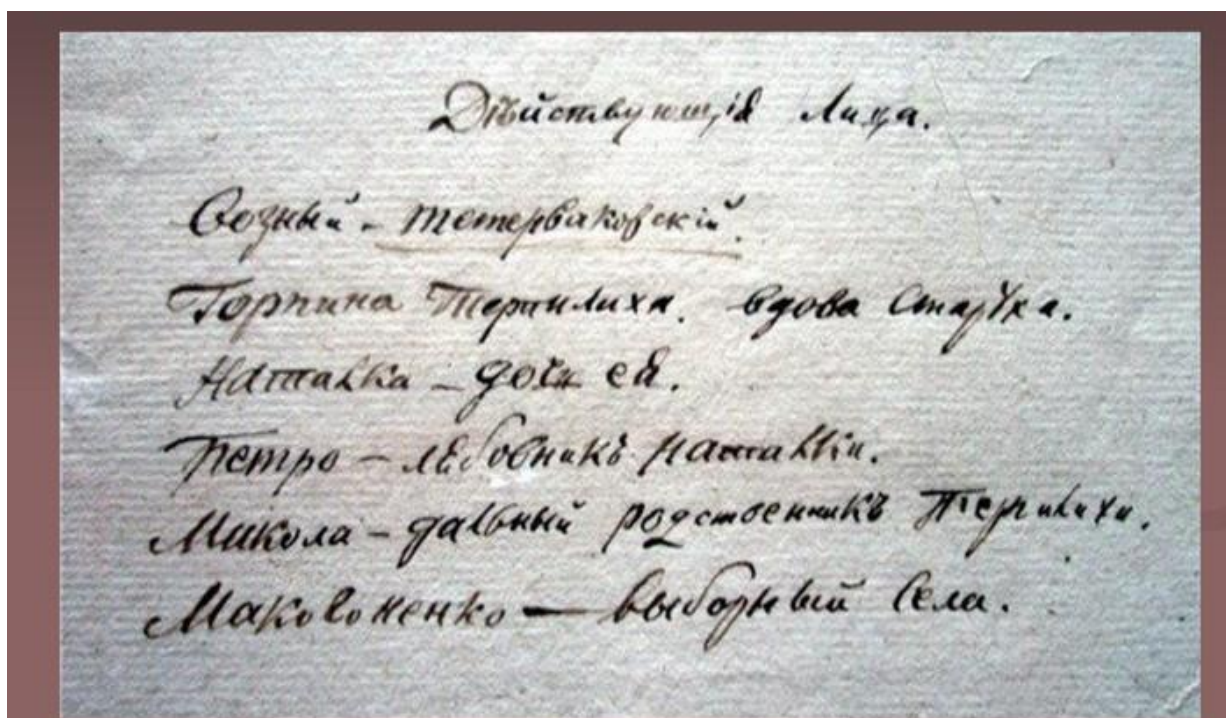 Дѣйствующія Лица.
Возный - Тетерваковскій.
Горпина Терпилиха. вдова старуха.
Наталка – дочь ея.
Петро – любовникъ Наталки.
Микола – дальный родственникъ Терпилихи.
Маковоненко — выборный села.